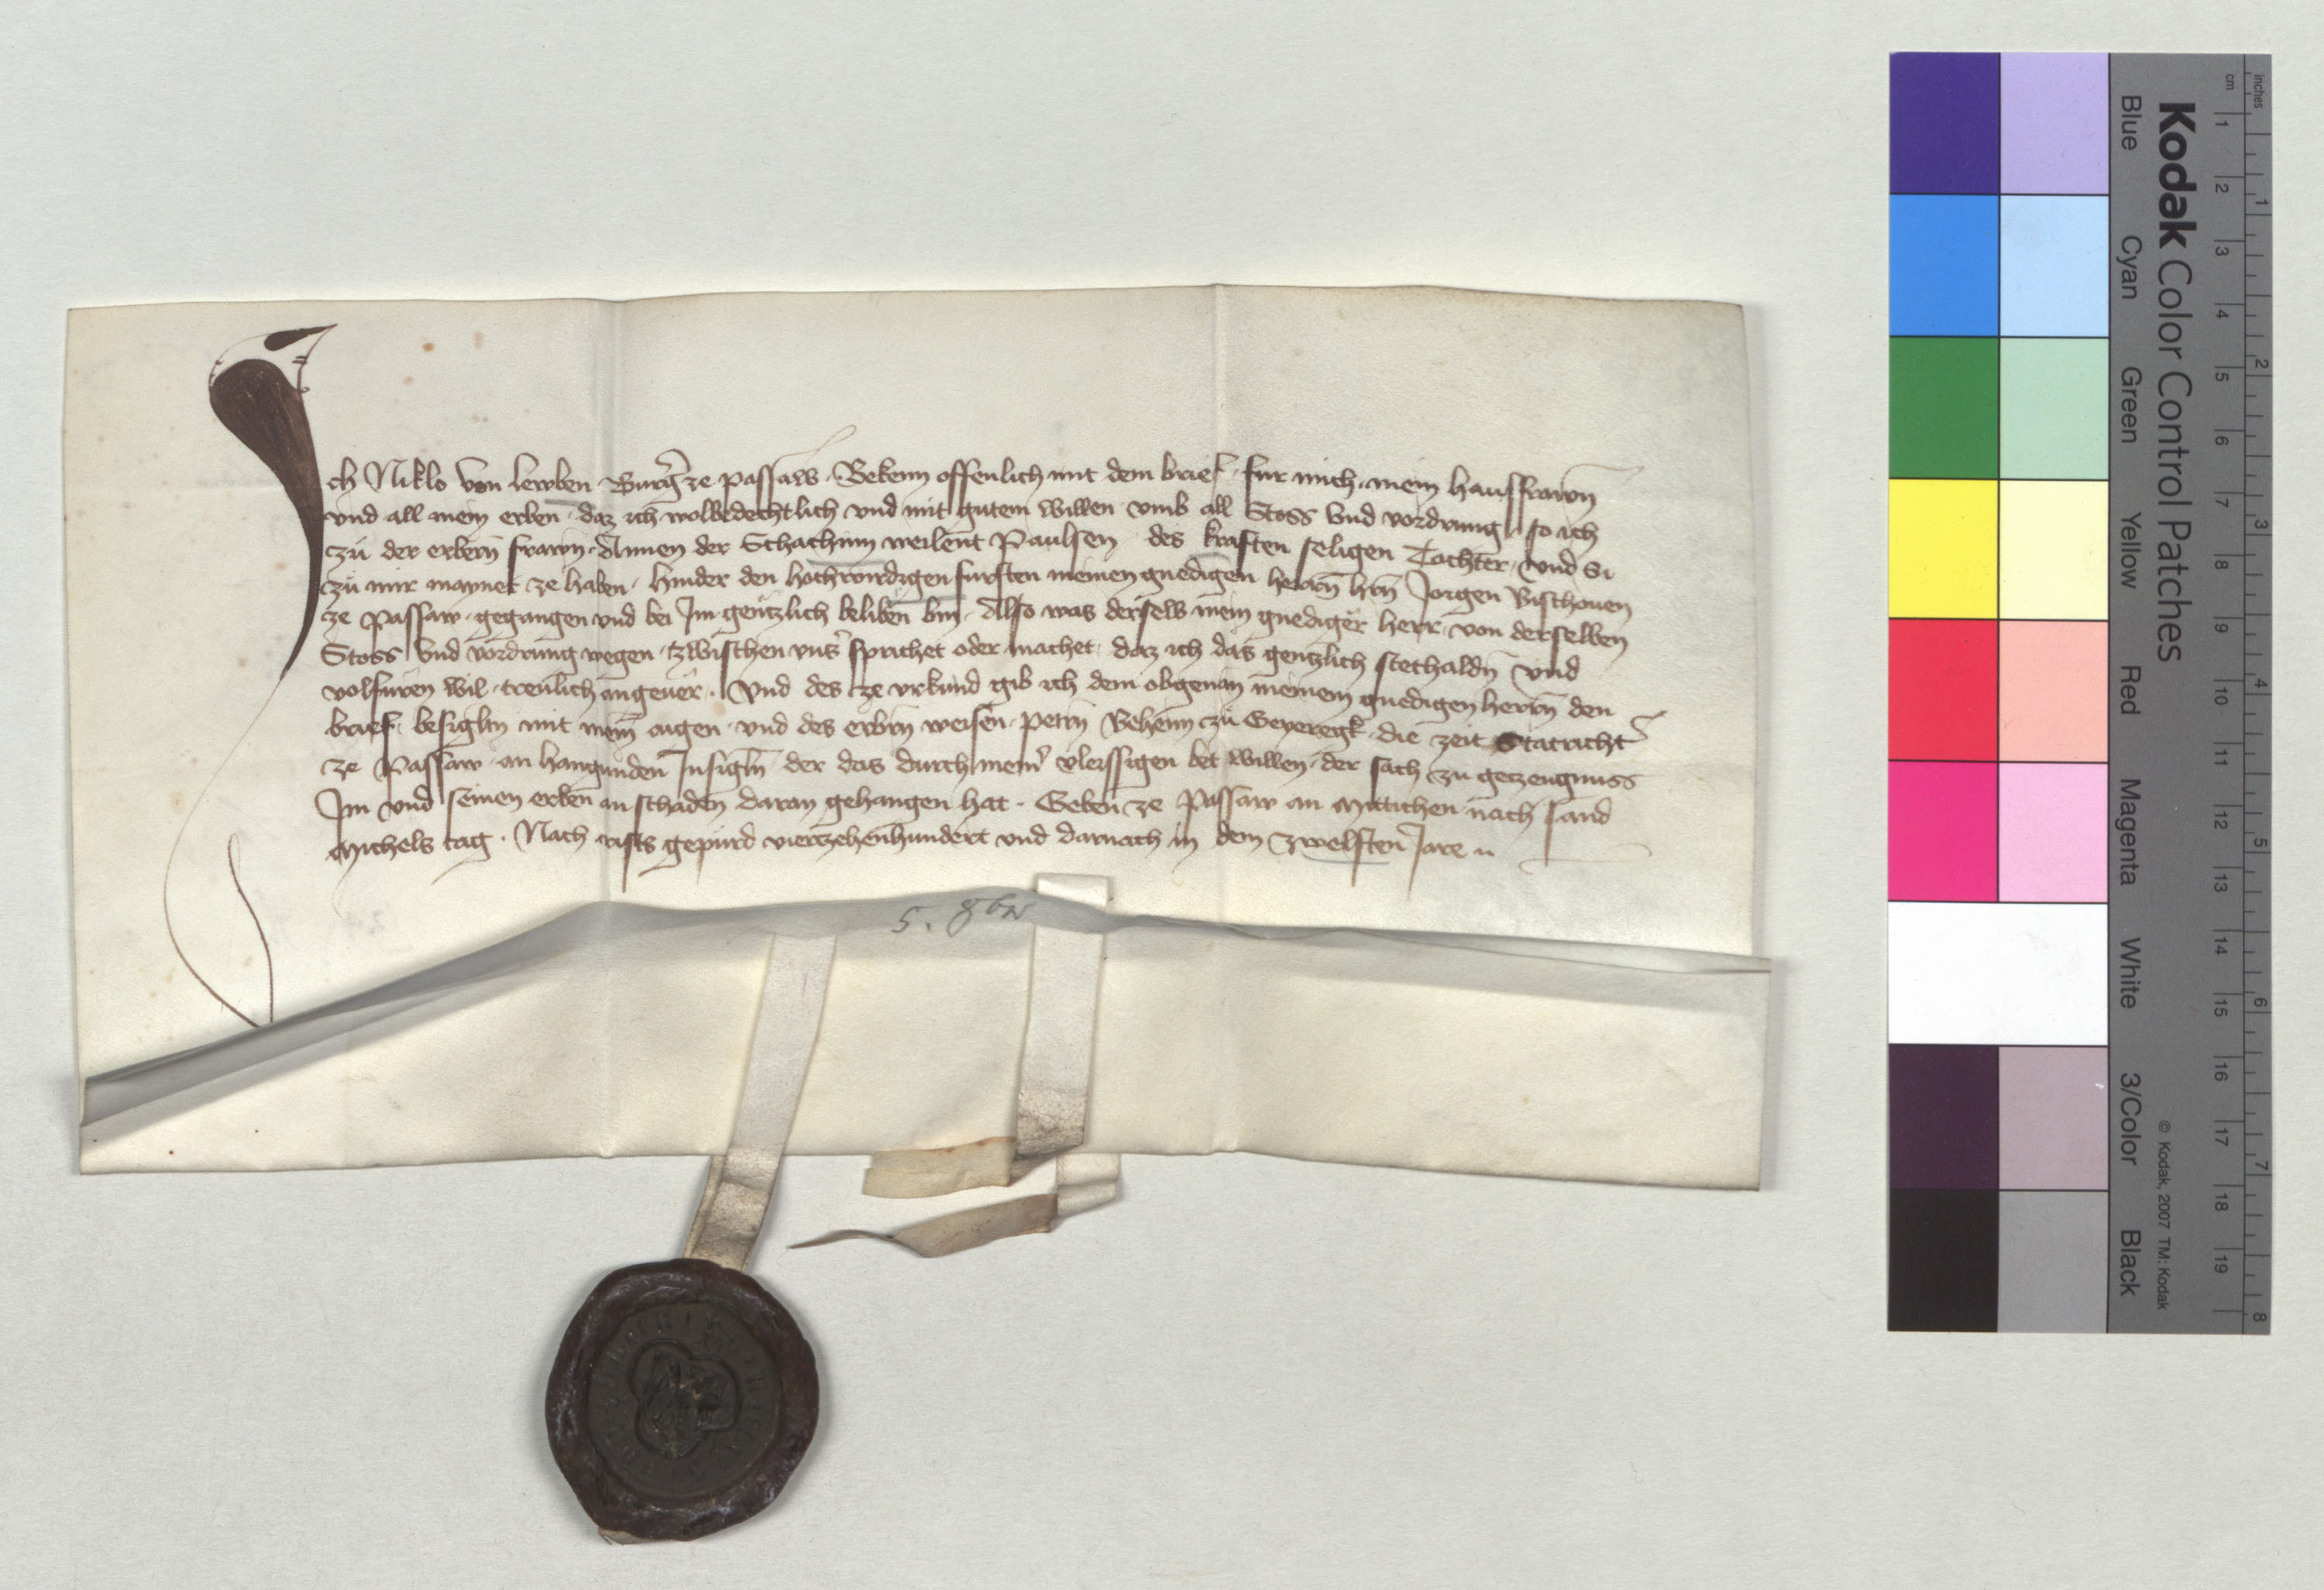 Ich Niklo von Lewben Burg̃ ze passaw Bekenn offenlich mit dem brief fur mich mein hausfrawn
vnd all mein erben daz ich wolbedechtlich vnd mit gutem willen vmb all Stoss vnd vordrung so ich
zu der erbern frawn Annen der Schachnin weilent Paulsen des kraften seligen Tochter vnd Si
zu mir maynet ze haben hinder den hochwirdigen fursten meinen gnedigen herrn hrn Jorgen Bischouen
ze Passaw gegangen vnd bei Im gentzlich beliben bin Also was derselb mein gnediger herr von derselben
Stoss vnd vordrung wegen tzwischen vns sprichet oder machet daz ich das gentzlich stethaldn vnd
volfuren wil treulich angeuer Vnd des ze vrkund gib ich dem obgenan meinem gnedigen herrn den
brief besigltn mit meim aigen vnd des erbrn weisen Petrn Behemn zu Geyeregk die zeit Statricht
ze Passaw an hangunden Insigln der das durch meinr vleissigen bet willen der sach zu getzeugnuss
Im vnd seinen erben an schaden daran gehangen hat Geben ze Passaw an Mittichen nach sand
Michels tag Nach crists gepurd viertzehenhundert vnd darnach in dem zwelften Jare
5. 8br
Kodak Color Control Patches
Blue Cyan Green Yellow Red Magenta White 3/Color Black
© Kodak, 2007 TM: Kodak
cm 1 2 3 4 5 6 7 8 9 10 11 12 13 14 15 16 17 18 19
inches 1 2 3 4 5 6 7 8